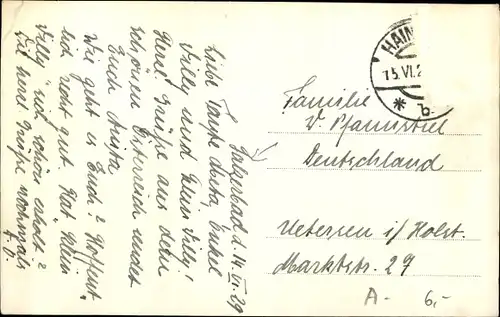 Salzerbad d. 14. VI. 29
Liebe Tante Meta, Onkel
Willy und Klein Willy!
Herzl. Grüße aus dem
schönen Österreich sendet
Euch
Wie geht es Euch? Hoffent-
lich recht gut. Hat Klein
Willy sich schön erholt?
Viel herzl Grüße nochmals
D. O.
HAIN
15.VI.2
* b
Familie
V. Pfannstiel
Deutschland
Uetersen i/Holst.
Marktstr. 29
A- 6,-